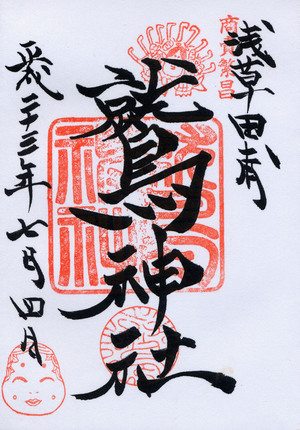 浅草田甫
商売繁昌
鷲神社
平成二十三年七月四日